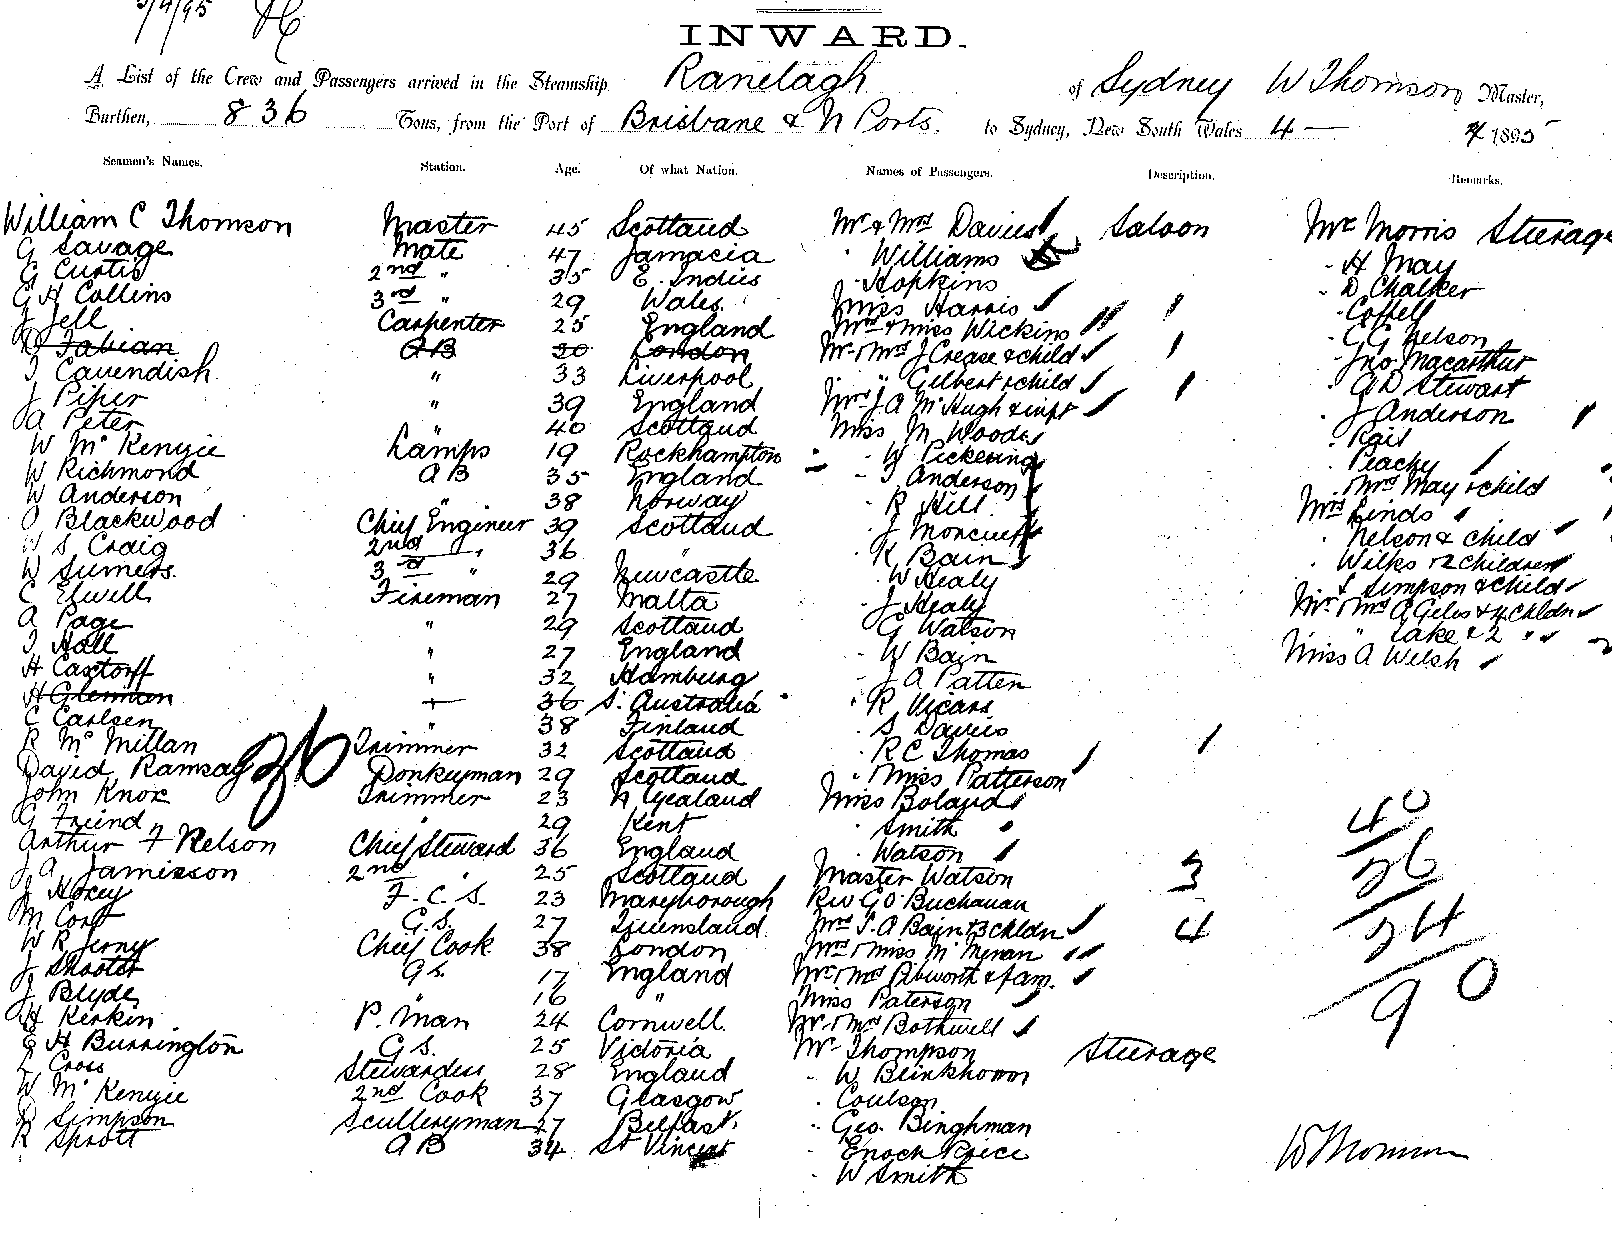 5/4/95
INWARD.
A List of the Crew and Passengers arrived in the Steamship Ranelagh of Sydney W Thomson Master,
Burthen, 836 Tons, from the Port of Brisbane & N Ports. to Sydney, New South Wales 4 — 4 1895
Seamen's Names. Station. Age. Of what Nation. Names of Passengers. Description. Remarks.
William C Thomson Master 45 Scotland Mr & Mrs Davies Saloon Mr Morris Steerage
G Savage Mate 47 Jamacia " Williams " H May
G Curtis 2nd " 35 E. Indies " Hopkins " D Chalker
G H Collins 3rd " 29 Wales Miss Harris
J Jell Carpenter 25 England Mrs & Miss Wickins " G G Nelson
Fabian AB 30 London Mr & Mrs J Crease & child " Jno Macarthur
J Cavendish " 33 Liverpool " " Gilbert & child " G D Stewart
J Piper " 39 England Mrs J A McHugh & inft " J Anderson
A Peter " 40 Scotland Miss M Woods
W McKenzie Lamps 19 Rockhampton " W Pickering " Peachy
W Richmond AB 35 England " J Anderson " Mrs May & child
W Anderson " 38 Norway " R Hill Mrs Linds
O Blackwood Chief Engineer 39 Scotland " J Moncrieff " Nelson & child
W S Craig 2nd " 36 " " K Bain " Wilks & 2 children
W Sumers. 3rd " 29 Newcastle " W Healy " S Simpson & child
C Elwill Fireman 27 Malta " J Healy Mr & Mrs A Giles & 4 chldn
A Page " 29 Scotland " G Watson " Lake & 2 "
J Hall " 27 England " W Bain Miss A Welsh
H Castorff " 32 Hamburg " J A Patten
H Glennen " 36 S. Australia " R Vicars
C Carlsen " 38 Finland " S Davies
R McMillan Trimmer 32 Scotland " R C Thomas
David Ramsay Donkeyman 29 Scotland " & Miss Patterson
John Knox Trimmer 23 N Zealand Miss Boland
G Friend " 29 Kent " Smith 40
Arthur F Nelson Chief Steward 36 England " Watson 26
J A Jamieson 2nd " 25 Scotland Master Watson 3
J Hocey F.C.S. 23 Maryborough Rev G O Buchanan 24
M Cort G.S. 27 Queensland Mrs J. A Bain & 3 chldn 4
W R Jerny Chief Cook 38 London Mrs & Miss 90
J Shooter G.S. 17 England Mr & Mrs Pibworth & fam.
J Blyde " 16 " Miss Paterson
H Kerkin P. Man 24 Cornwell. Mr & Mrs Bothwell
E H Burrington G S. 25 Victoria Mr Thompson Steerage
L Cross Stewardess 28 England " W Blinkhorn
W McKenzie 2nd Cook 37 Glasgow " Coulson
D Simpson Sculleryman 27 Belfast. " Geo. Binghman
R Sprott AB 34 St Vincent " Enoch Price W Thomson
" W Smith
26